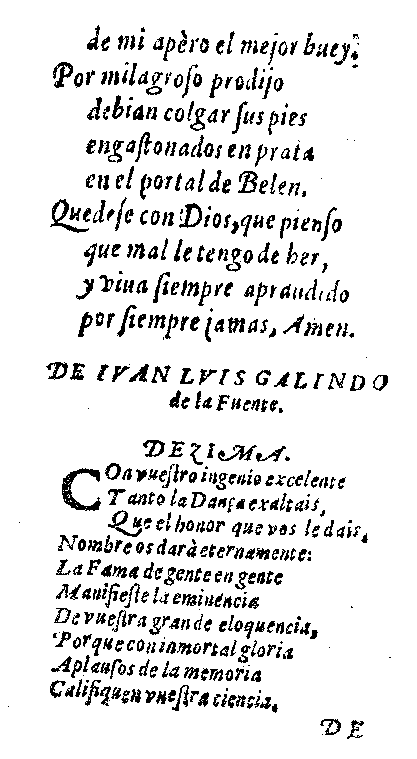 de mi apèro el mejor buey.
Por milagroſo prodijo
debian colgar ſus pies
engaſtonados en prata
en el portal de Belen.
Quedeſe con Dios, que pienſo
que mal le tengo de her,
y viua ſiempre apraudido
por ſiempre jamas, Amen.
DE IVAN LVIS GALINDO
de la Fuente.
DEZIMA.
COn vueſtro ingenio excelente
Tanto la Dança exaltais,
Que el honor que vos le dais,
Nombre os darà eternamente:
La Fama de gente en gente
Manifieſte la eminencia
De vueſtra grande eloquencia,
Porque con inmortal gloria
Aplauſos de la memoria
Califiquen vueſtra ciencia.
DE